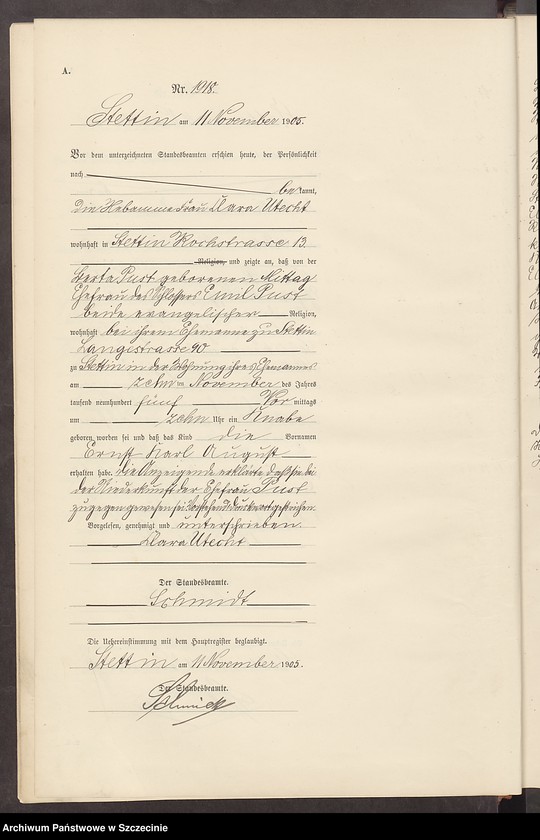 A.
Nr. 1918.
Stettin am 11 November 1905.
Vor dem unterzeichneten Standesbeamten erschien heute, der Persönlichkeit
nach
bekannt,
die Hebamme Frau Clara Utecht
wohnhaft in Stettin Rochstrasse 13
Religion, und zeigte an, daß von der
Herta Pust geborenen Mittag
Ehefrau des Schlossers Emil Pust
beide evangelischer Religion,
wohnhaft bei ihrem Ehemanne zu Stettin
Langestrasse 90
zu Stettin in der Wohnung ihres Ehemannes
am zehnten November des Jahres
tausend neunhundert fünf Vormittags
um zehn Uhr ein Knabe
geboren worden sei und daß das Kind die Vornamen
Ernst Karl August
erhalten habe. Die Anzeigende erklärte daß sie bei
der Niederkunft der Ehefrau Pust
zugegen gewesen sei. Vorstehend 1 Druckwort gestrichen.
Vorgelesen, genehmigt und unterschrieben.
Clara Utecht
Der Standesbeamte.
Schmidt
Die Uebereinstimmung mit dem Hauptregister beglaubigt.
Stettin am 11 November 1905.
Der Standesbeamte.
Schmidt
Archiwum Państwowe w Szczecinie